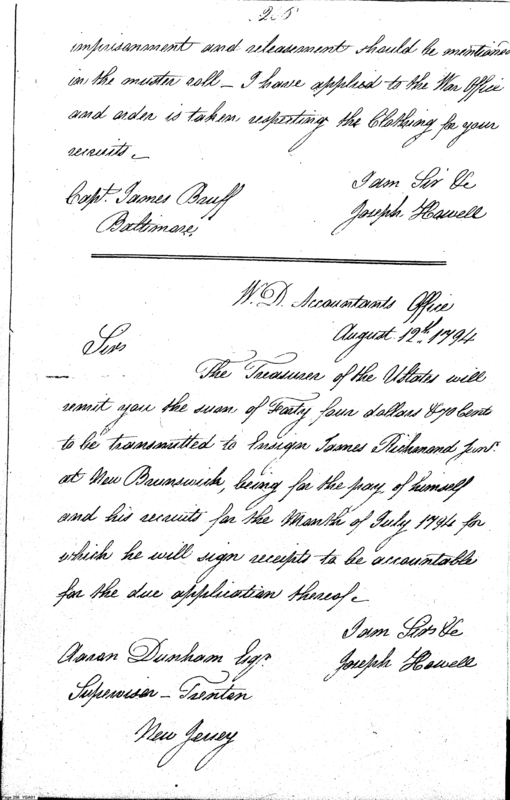 imprisonment and releasement should be mentioned
in the muster roll – I have applied to the War Office
and order is taken respecting the Clothing for your
recruits –
I am Sir &c
Capt. James Bruff
Joseph Howell
Baltimore
W. D. Accountants Office
August 12th. 1794
Sir
The Treasurer of the UStates will
remit you the sum of Forty four dollars & 70 Cents
to be transmitted to Ensign James Richmond Junr.
at New Brunswick, being for the pay of himself
and his recruits for the Month of July 1794 for
which he will sign receipts to be accountable
for the due application thereof –
I am Sir &c
Aaron Dunham Esqr.
Joseph Howell
Supervisor – Trenton
New Jersey